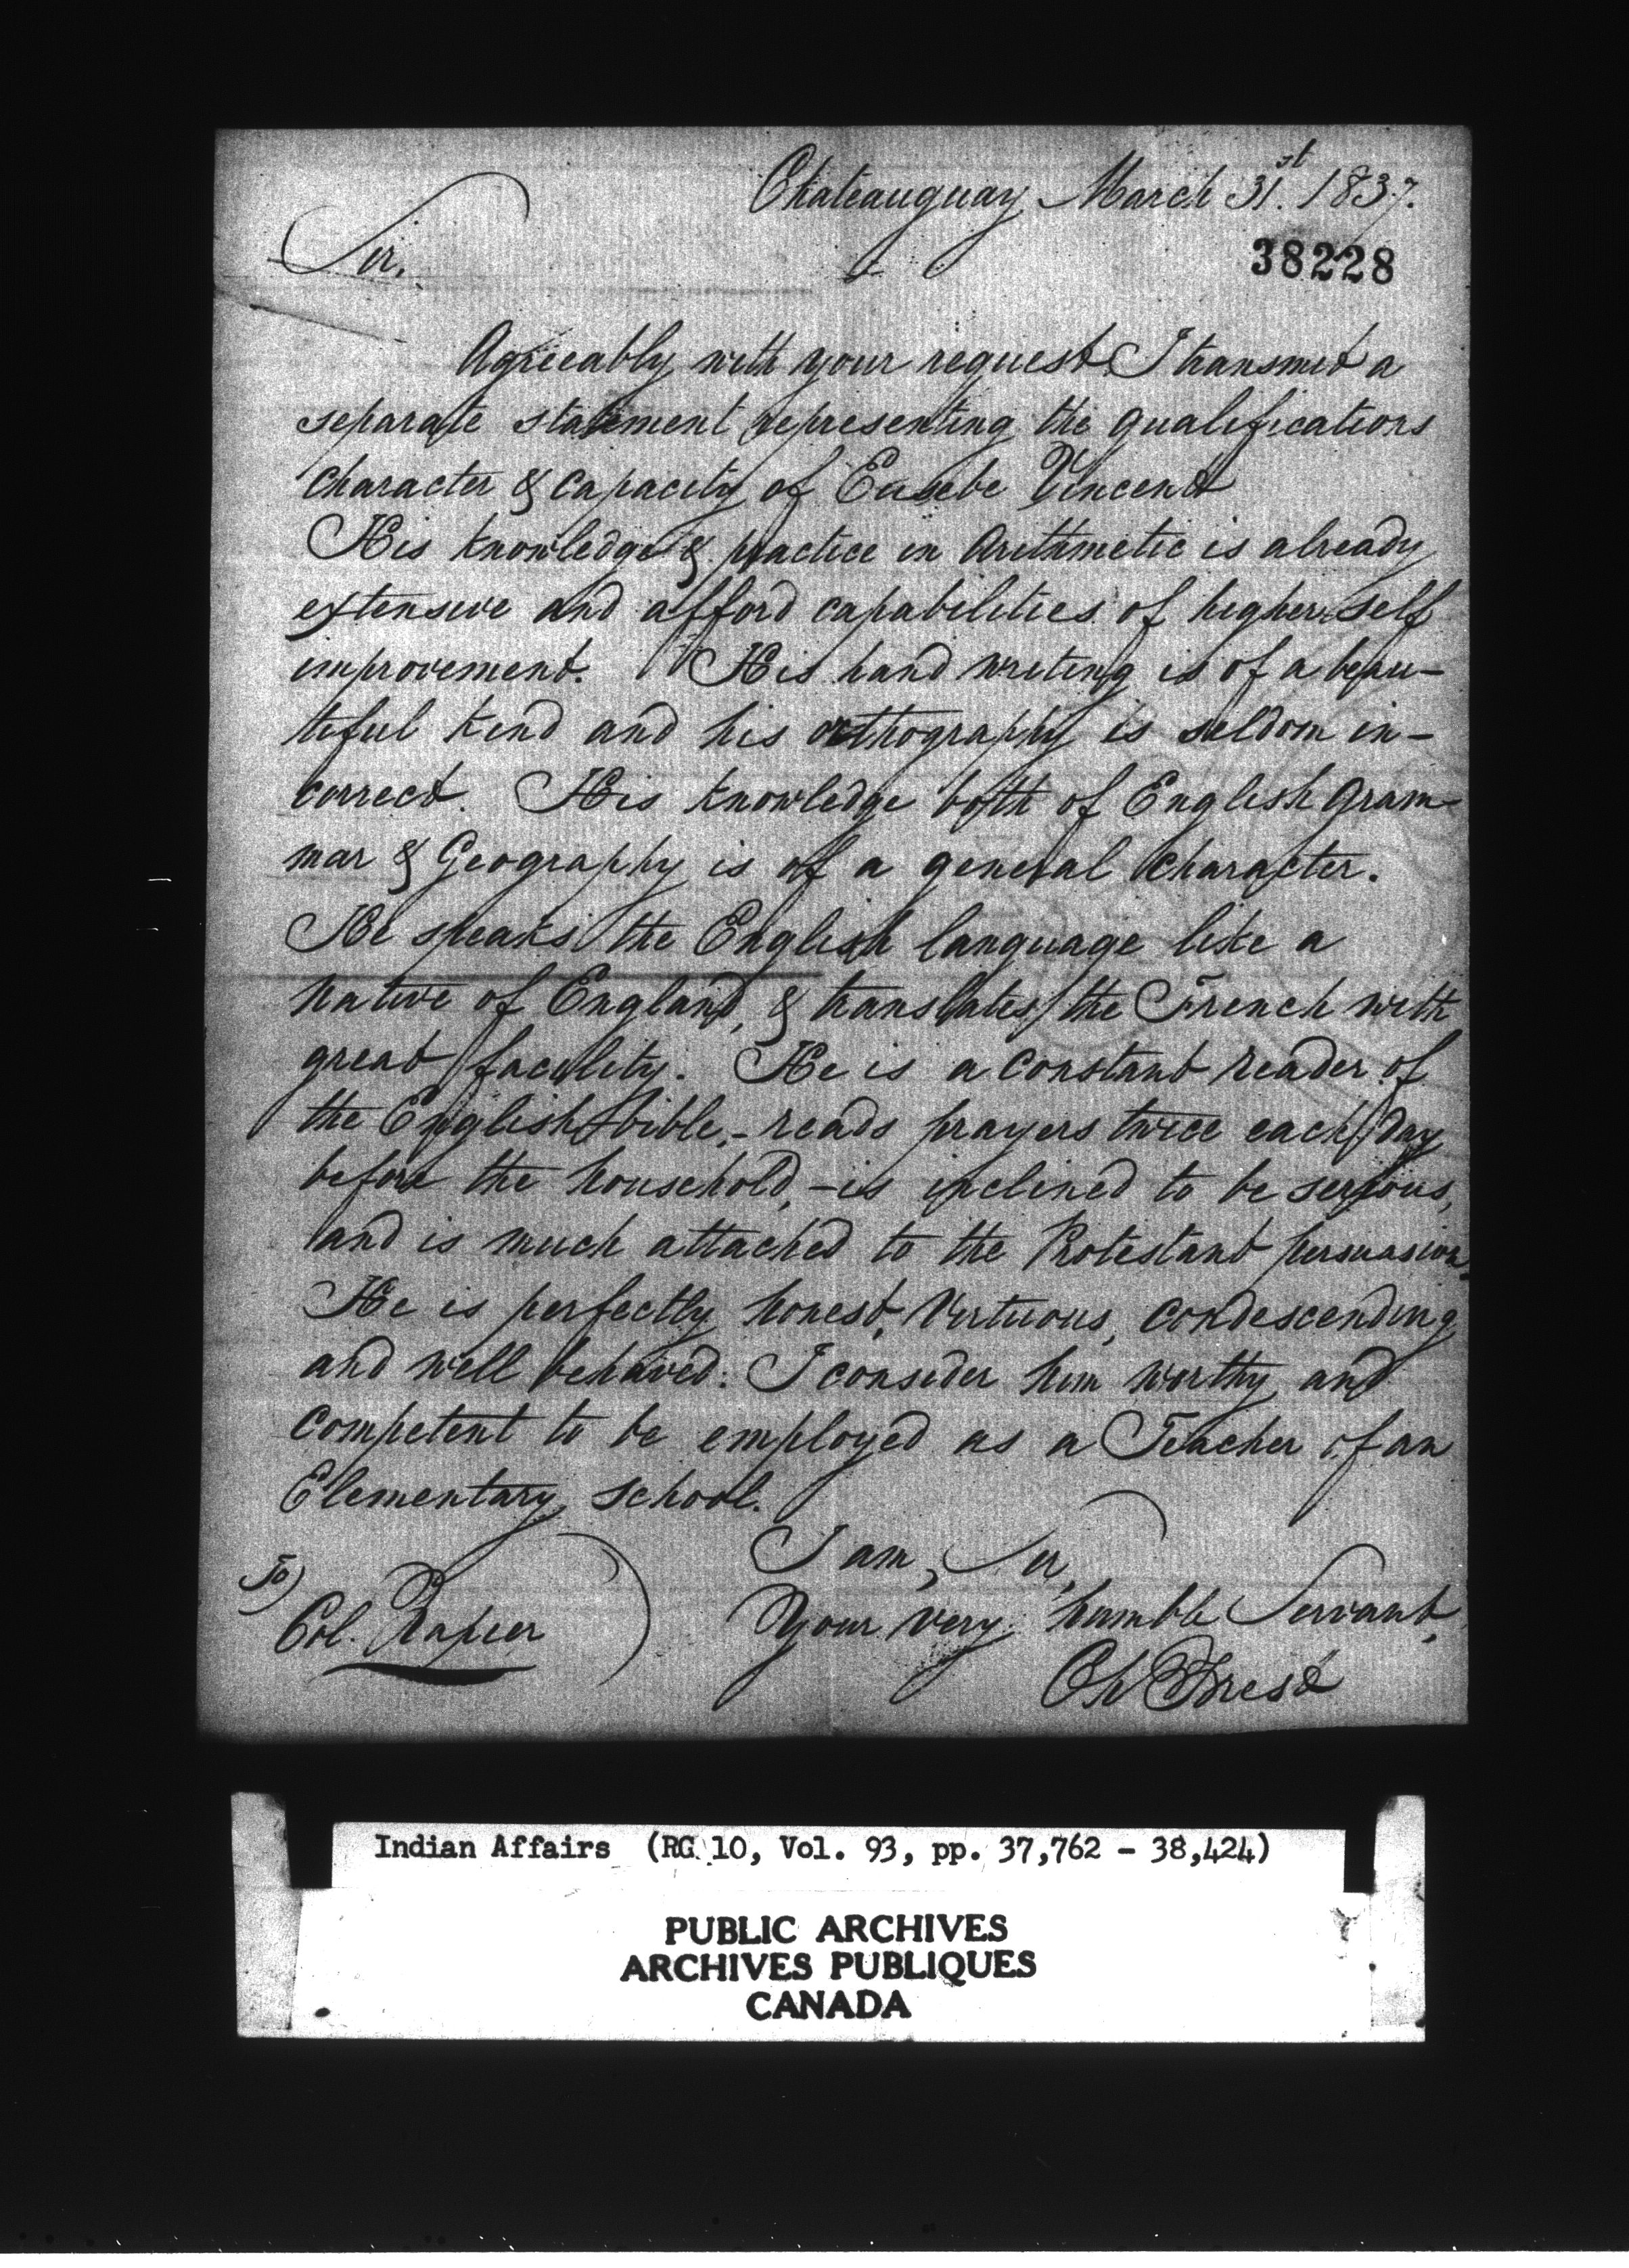 Chateauguay March 31st. 1837.
38228
Sir,
Agreeably with your request I transmit a
separate statement representing the qualifications
character & capacity of Eusebe Vincent
His knowledge & practice in Arithmetic is already
extensive and afford capabilities of higher self
improvement. His hand writing is of a beau-
tiful kind and his orthography is seldom in-
correct. His knowledge both of English Gram-
mar & Geography is of a general character.
He speaks the English language like a
native of England, & translates the French with
great facility. He is a constant reader of
the English bible,- reads prayers twice each day
before the household, - is inclined to be serious,
and is much attached to the Protestant persuasion.
He is perfectly honest, virtuous, condescending
and well behaved: I consider him worthy and
competent to be employed as a Teacher of an
Elementary school.
I am, Sir,
Your very humble Servant,
Ch
To)
Col. Napier
Indian Affairs (RG 10, Vol. 93, pp. 37,762 - 38,424)
PUBLIC ARCHIVES
ARCHIVES PUBLIQUES
CANADA